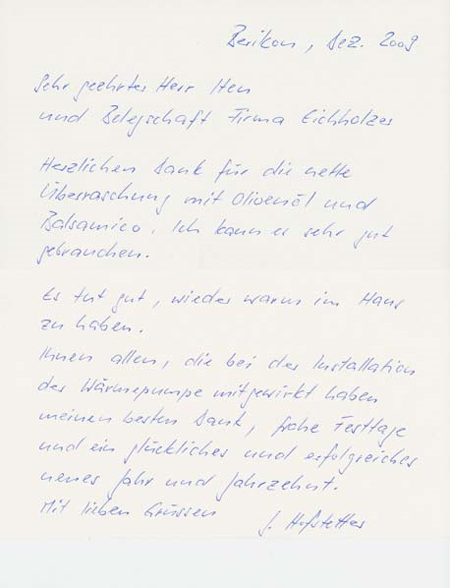 Berikon, Dez. 2009
Sehr geehrter Herr Iten
und Belegschaft Firma Eichholzer
Herzlichen Dank für die nette
Überraschung mit Olivenöl und
Balsamico. Ich kann es sehr gut
gebrauchen.
Es tut gut, wieder warm im Haus
zu haben.
Ihnen allen, die bei der Installation
der Wärmepumpe mitgewirkt haben
meinen besten Dank, frohe Festtage
und ein glückliches und erfolgreiches
neues Jahr und Jahrzehnt.
Mit lieben Grüssen
J. Hofstetter